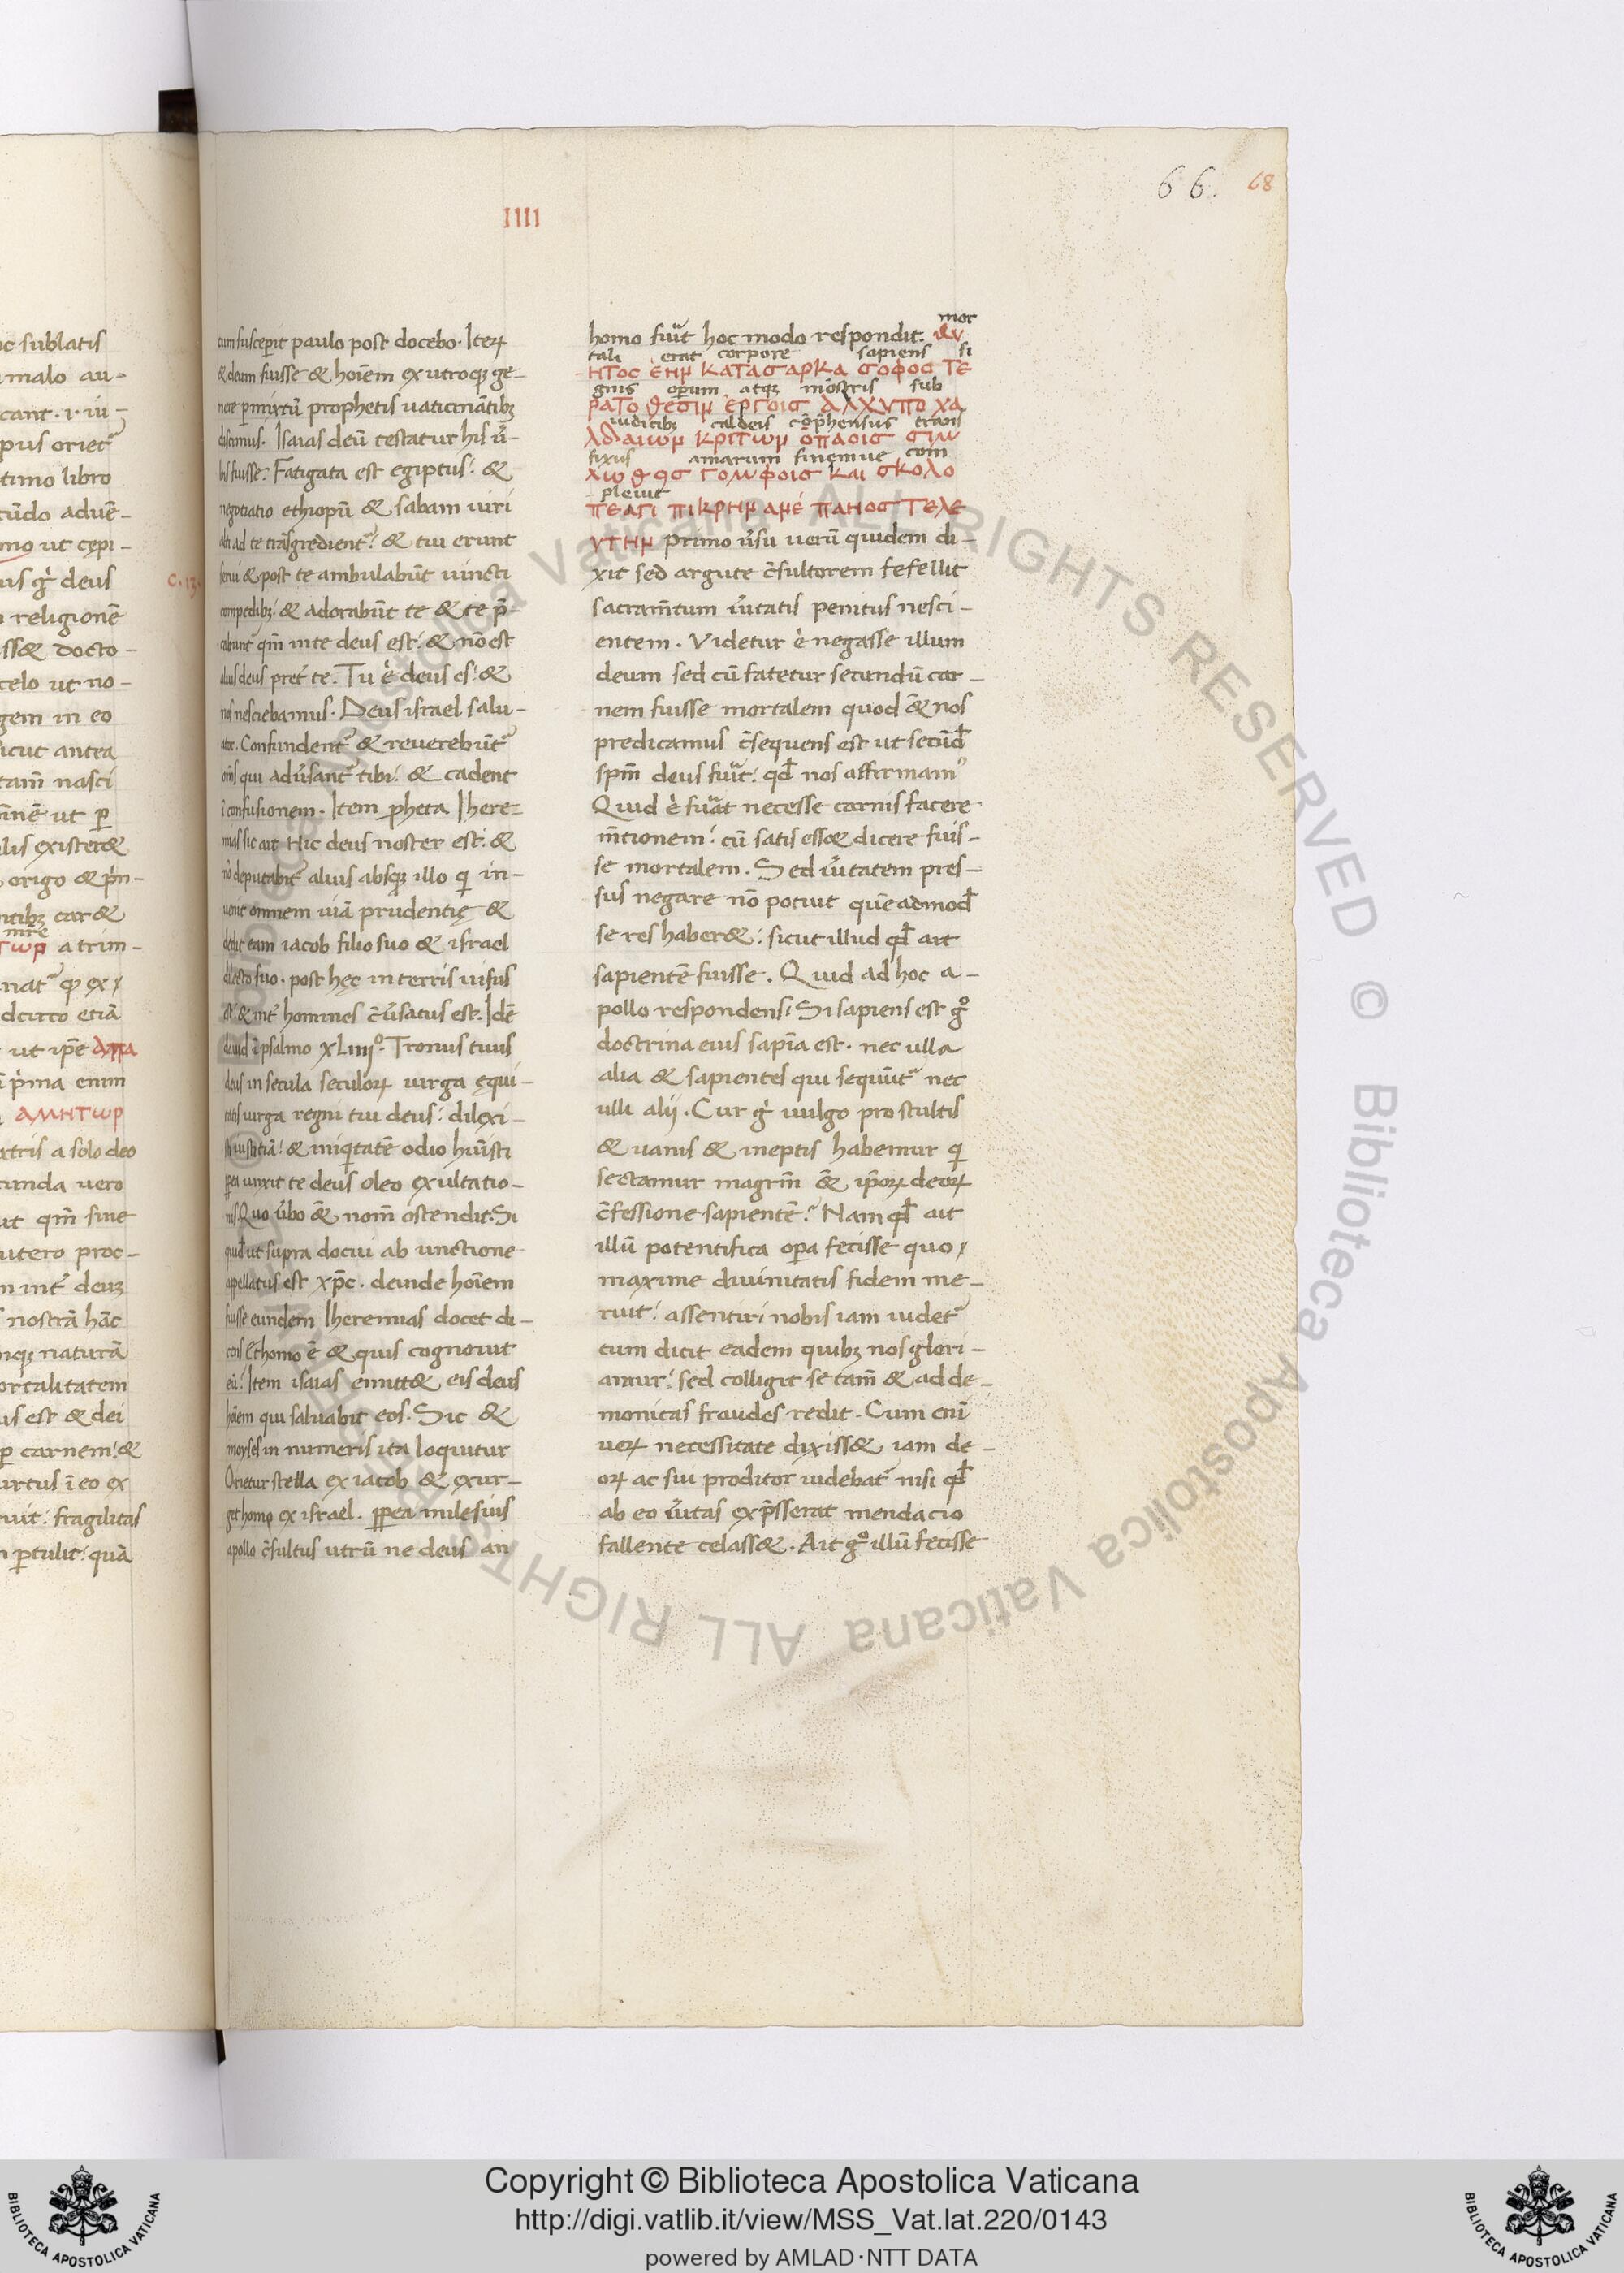 66. 68
IIII
c sublatis
malo au-
cant. i. iu-
pus oriet᷑
timo libro
cūdo aduē-
mo ut cępi-
us gͥ deus
religionē
ss& docto-
celo ut no-
gem in eo
icut antea
tam̄ nasci
lis exister&
origo & pͥn-
ntibꝫ car&
mr̄e
ΤωΡ a trim-
nat᷑ ꝙ ex
dcirco etiā
ut ip̄e ΑΠΑ
pͥma enim
ΑΜΗΤωΡ
xtris a solo deo
cunda vero
ut qm̄ sine
utero proc-
n int͛ deuꝫ
nostrā hāc
nqꝫ naturā
ortalitatem
us est & dei
ꝑ carnem: &
urtus ī eo ex
uit: fragilitas
n ꝑtulit: quā
C. 13.
cum suscepit paulo post docebo. Iteꝝ
& deum fuisse & hoīem ex utroqꝫ ge-
nere ꝑmixtū prophetis uaticinātibꝫ
discimus. Isaias deū testatur his u͛-
bis fuisse. Fatigata est egiptus: &
negotiatio ethiopū & sabam uiri
alti ad te trāsgredient᷑: & tui erunt
serui & post te ambulabūt uincti
compedibꝫ: & adorabūt te & te p̄-
cabunt᷑ qm̄ in te deus est: & nō est
alius deus pret͛ te. Tu ė deus es: &
nos nesciebamus. Deus israel salu-
ator. Confundent᷑ & reuerebūt᷑
om̄s qui adu͛sant᷑ tibi: & cadent
ī confusionem. Item ꝓheta Ihere-
mias sic ait Hic deus noster est: &
nō deputabit᷑ alius absqꝫ illo qͥ in-
uenit omnem uiā prudentię &
dedit eam iacob filio suo & israel
dilecto suo. post hęc in terris uisus
ē & int͛ homines c̄u͛satus est. Idē
dauid ī psalmo xLiiiiº. Tronus tuus
deus in secula seculoꝝ uirga ęqui-
tatis uirga regni tui deus: dilexi-
sti iustitiā: & iniqͥtatē odio huīsti
ꝓpea unxit te deus oleo exultatio-
nis. Quo u͛bo & nom̄ ostendit. Si
quidē ut supra docui ab unctione
appellatus est xp̄c. deinde hoīem
fuisse eundem Iheremias docet di-
cens & homo ē & quis cognouit
eū: Item isaias emitt& eis deus
hoīem qui saluabit eos. Sic &
moyses in numeris ita loquitur
Orietur stella ex iacob & exur-
get homo ex israel. ꝓpea milesius
apollo c̄sultus utrū ne deus an
mor
homo fuīt hoc modo respondit. ΘΝ
tali erat corpore sapiens si
ΗΤΟϹ ΕΗΜ ΚΑΤΑ ϹΑΡΚΑ ϹΟΦΟϹ ΤΕ
gnis operum atqꝫ mōstris sub
ΡΑΤΟ ΘΕϹΙΜ ΕΡΓΟΙϹ ΑΛΧΥΠΟ ΧΑ
iudicibꝫ caldeis cōp̄hensus trans
ΛΔΑΙωΜ ΚΡΙΤωΜ ΟΠΛΟΙϹ ϹΙω
fixus amarum finemue com
ΧΙωΘΘϹ ΓΟΜΦΟΙϹ ΚΑΙ ϹΚΟΛΟ
pleuit
ΠΕϹϹΙ ΠΙΚΡΗΜ ΑΜΕΠΛΗϹ ΤΕΛΕ
ΥΤΗΜ primo u͛su uerū quidem di-
xit sed argute c̄sultorem fefellit
sacram̄tum u͛itatis penitus nesci-
entem. Videtur ė negasse illum
deum sed cū fatetur secundū car-
nem fuisse mortalem quod & nos
predicamus c̄sequens est ut secūdū
spm̄ deus fuīt: qd̄ nos affirmamꝰ
Quid ė fuīat necesse carnis facere
m̄tionem: cū satis ess& dicere fuis-
se mortalem. Sed u͛itatem pres-
sus negare nō potuit quēadmodū
se res haber&: sicut illud qd̄ ait
sapientē fuisse. Quid ad hoc a-
pollo respondens: Si sapiens est gͦ
doctrina eius sapīa est. nec ulla
alia & sapientes qui sequūt᷑ nec
ulli alij. Cur gͥ uulgo pro stultis
& uanis & ineptis habemur qͥ
sectamur magrm̄ & ip̄oꝝ deoꝝ
c̄fessione sapientē: Nam qd̄ ait
illū potentifica opa fecisse quo
maxime diuinitatis fidem me-
ruit: assentiri nobis iam uidet᷑
cum dicit eadem quibꝫ nos glori-
amur: sed colligit se tam̄ & ad de-
monicas fraudes redit. Cum enī
ueꝝ necessitate dixiss& iam de-
oꝝ ac sui proditor uidebat᷑ nisi qd̄
ab eo u͛itas exp̄sserat mendacio
fallente celass&. Ait gͦ illū fecisse
Biblioteca Apostolica Vaticana ALL RIGHTS RESERVED ©
Copyright © Biblioteca Apostolica Vaticana
http://digi.vatlib.it/view/MSS_Vat.lat.220/0143
powered by AMLAD·NTT DATA
BIBLIOTECA APOSTOLICA VATICANA
BIBLIOTECA APOSTOLICA VATICANA